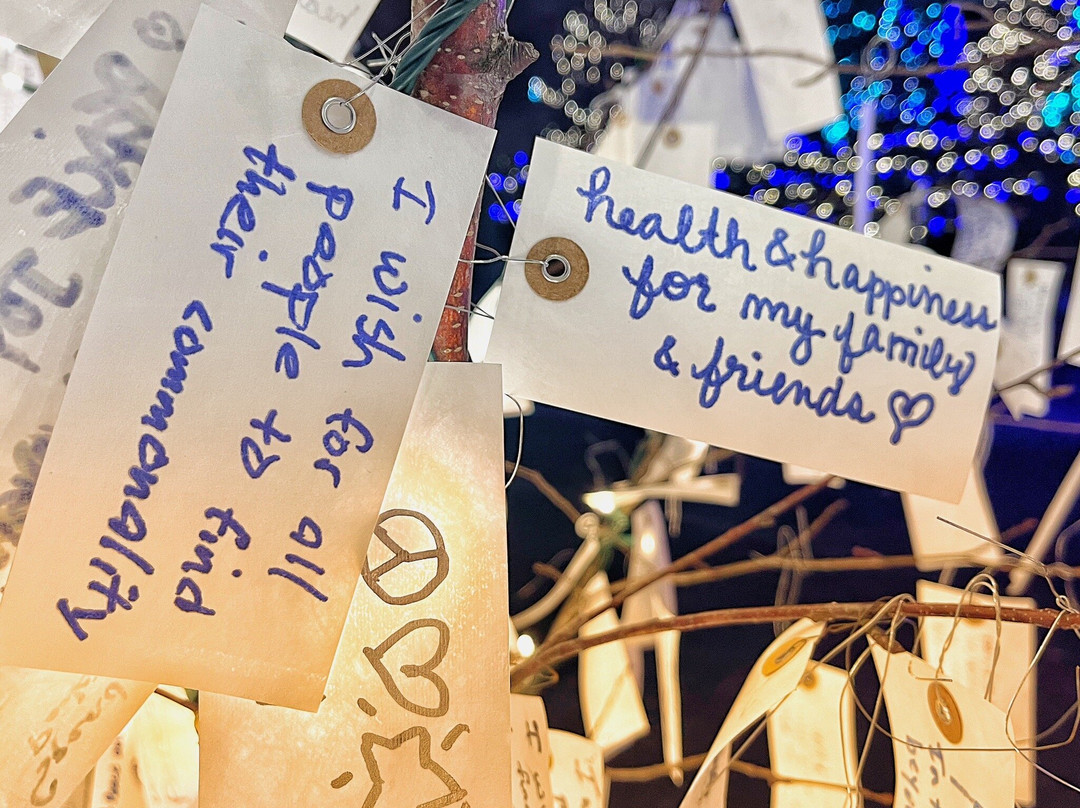 I wish for all
people to find
their commonality
health & happiness
for my family
& friends ♡